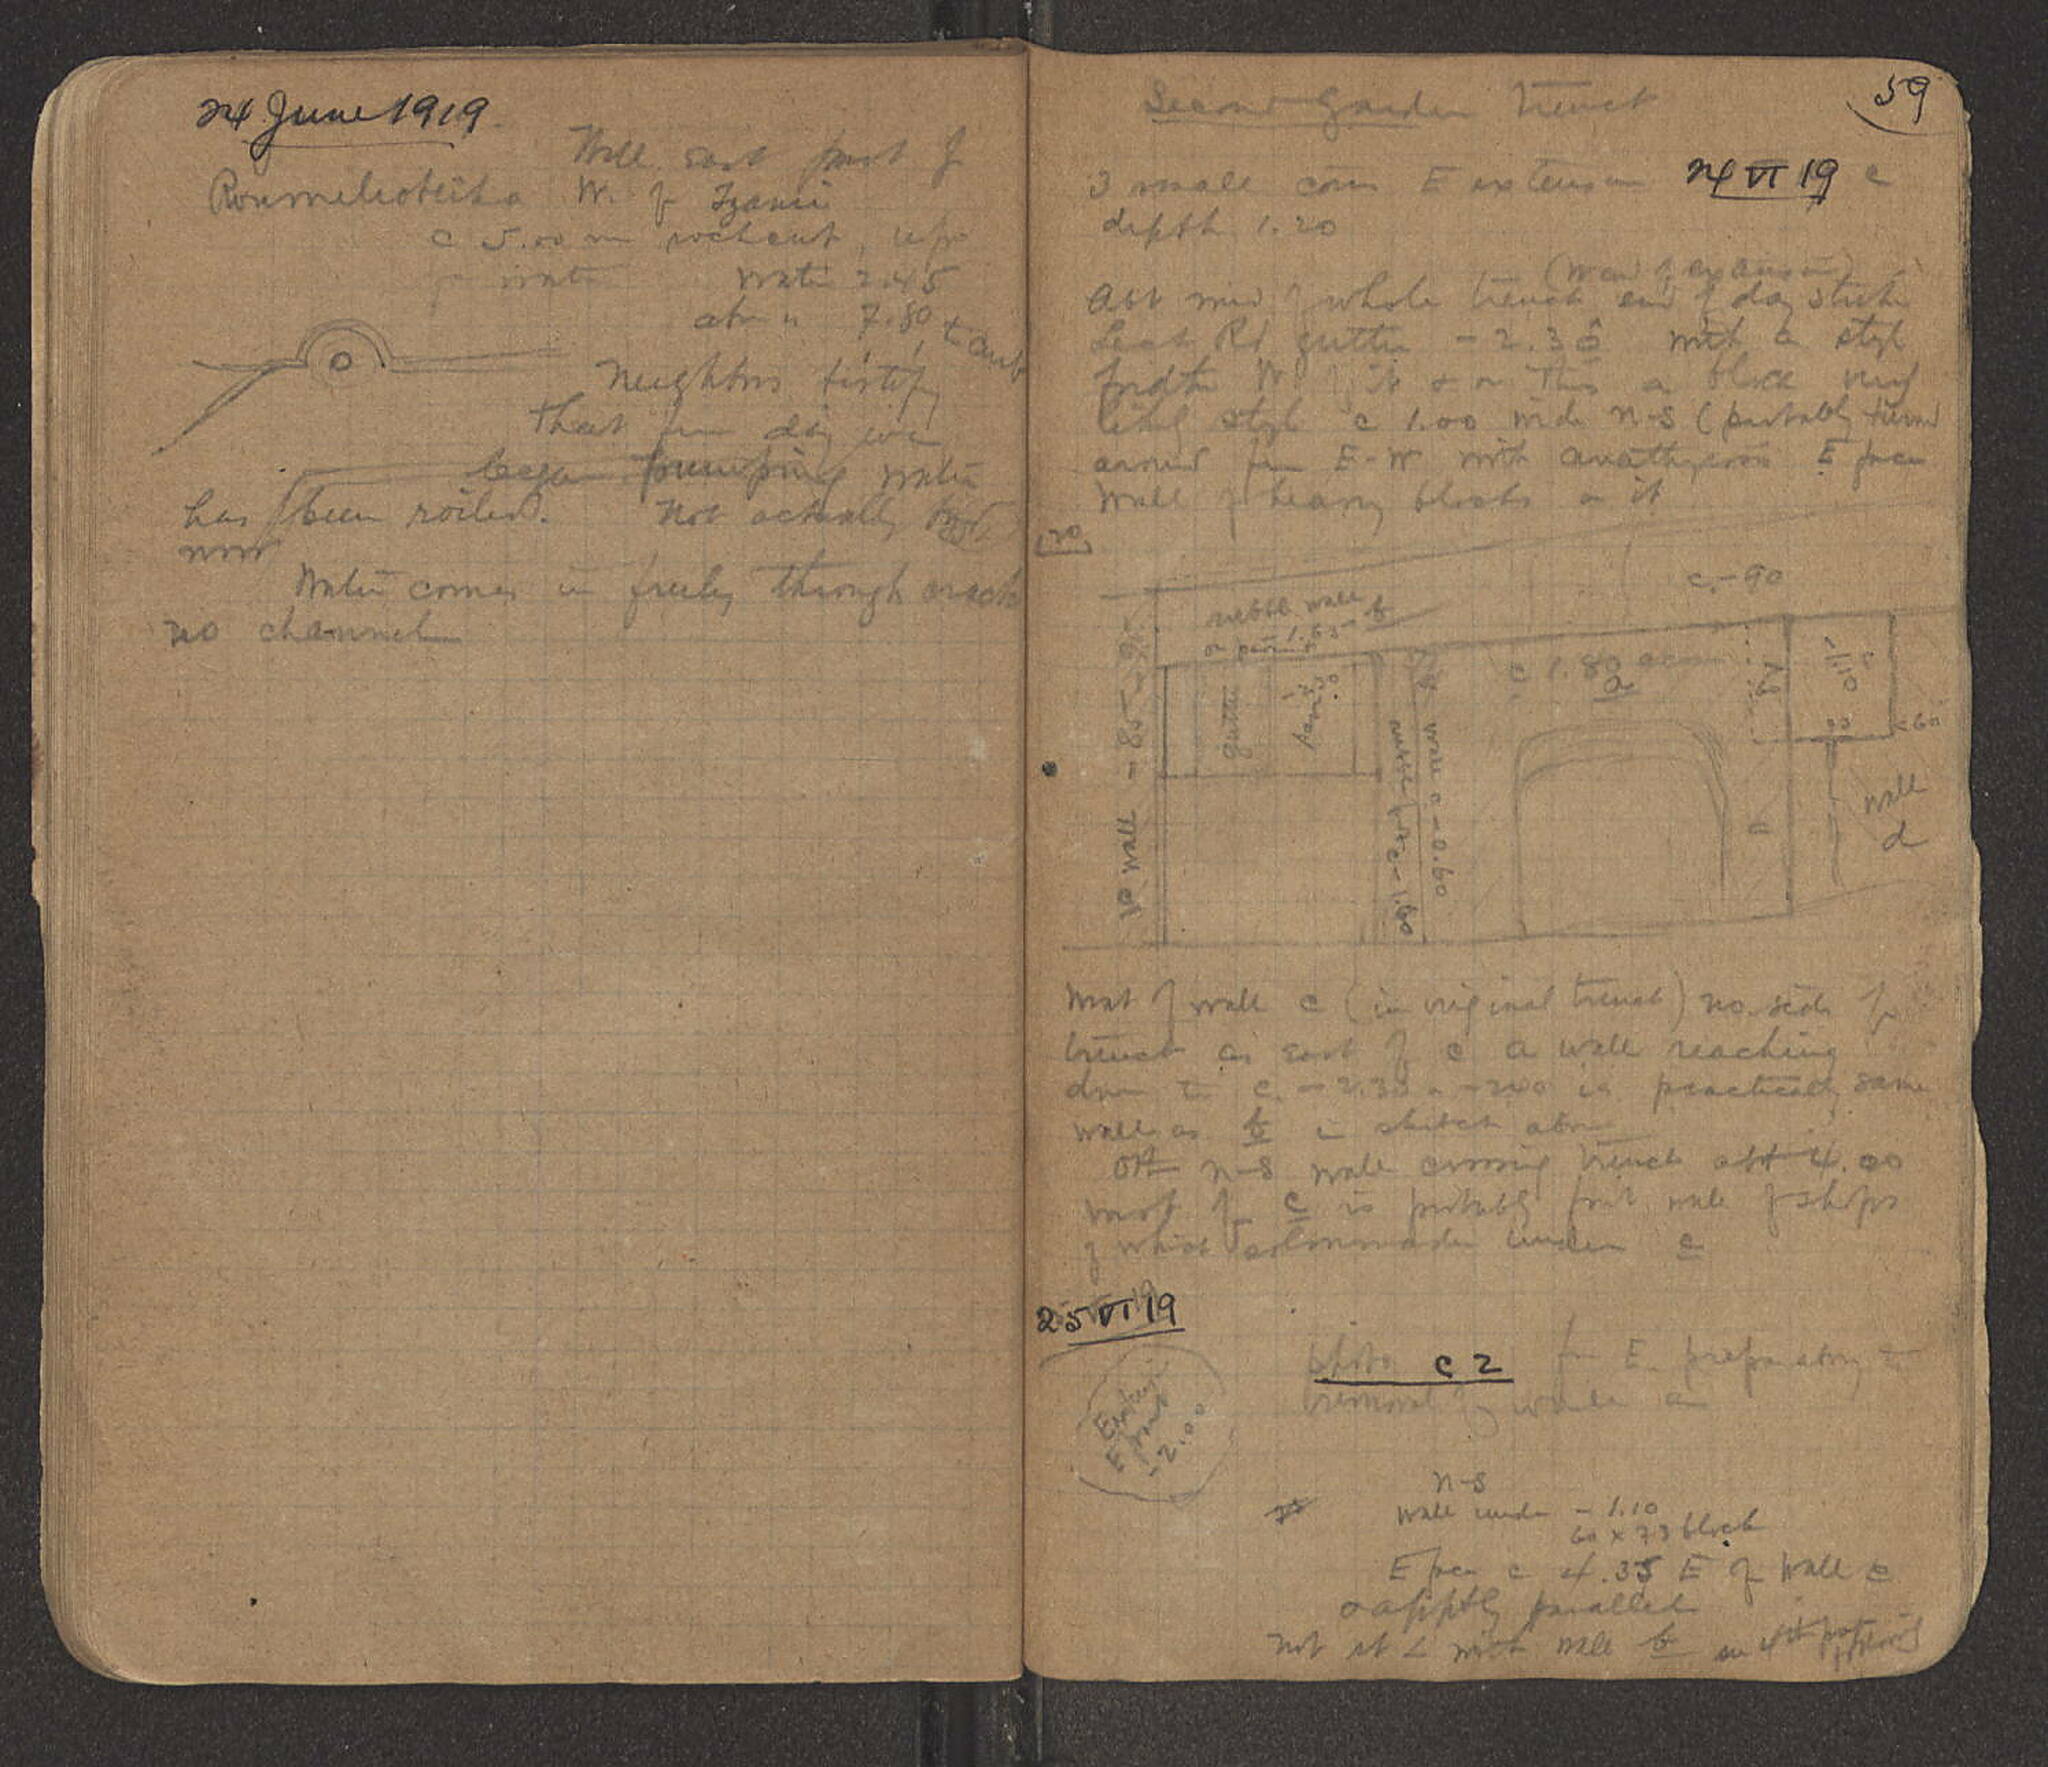 24 June 1919
Well east part of
Roumeliotika W. of Tzami
c 5.00 m without
for water water 2.45
above " 7.80
Neighbors testify
that from day we
began pumping water
has been roiled. Not actually
now
Water comes in freely through cracks
no channel
59
Second Garden Trench
24 VI 19
3 small coins E extension c
depth 1.20
(W end of extension)
Abt mid of whole trench end of day struck
gutter - 2.38 with a step
further W of it & on this a block very
likely step c 1.00 wide N-S (probably turned
around from E-W with anathyrosis E face
Wall of heavy blocks on it
c. -90
rubble wall
1.63 - b
W wall - 85 - 95
gutter
c 1.80
a
1.10
c 60
rubble c - 1.60
wall c - 0.60
wall
d
West of wall c (in original trench) no. side of
trench as east of c a wall reaching
down to c. - 2.30 or - 2.40 is practically same
wall as b in sketch above
N-S wall crossing trench abt 4.00
west of c is probably front wall of shops
of which colonnade under c
25 VI 19
Photo c 2 from E. preparatory to
removal of wall a
E part
- 2.00
N-S
Wall under - 1.10
60 x 73 block
E face c 4.35 E of wall c
& apptly parallel
not at ∠ with wall b